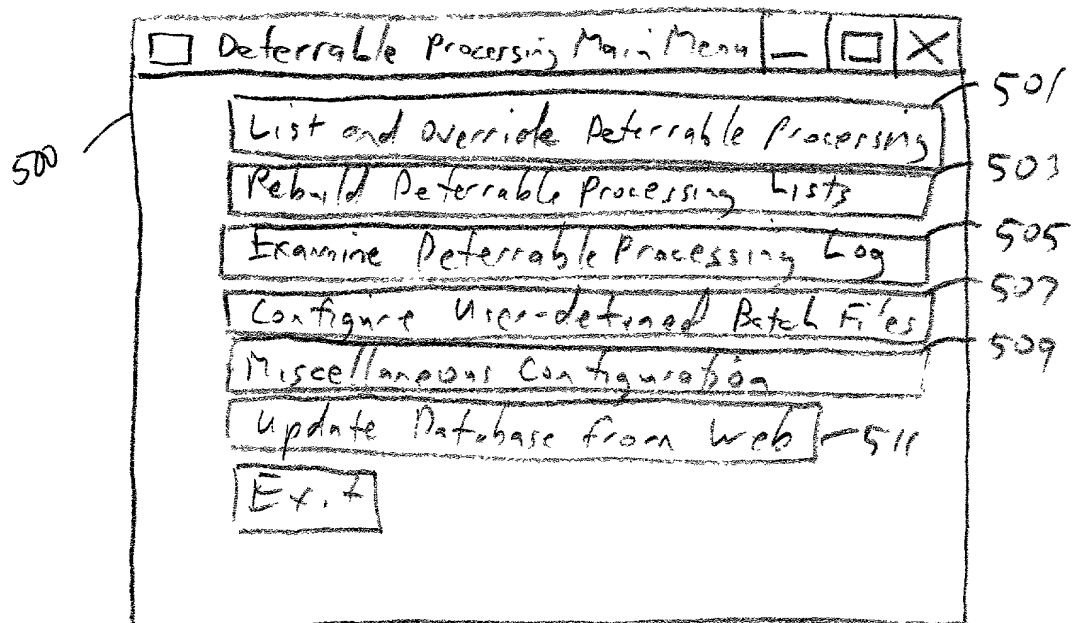 Deferrable Processing Main Menu
501
List and Override Deferrable Processing
503
500
Rebuild Deferrable Processing Lists
505
Examine Deferrable Processing Log
507
Configure User-defined Batch Files
509
Miscellaneous Configuration
Update Database from Web
511
Exit